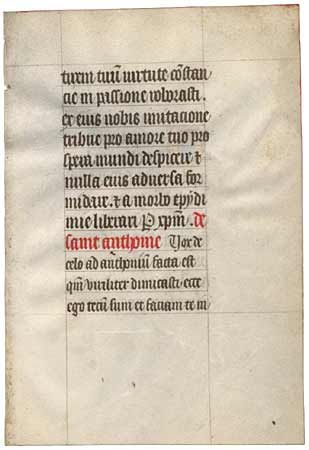 tirem tuū virtute cōstan
cie in passione roborasti.
ex eius nobis imitacione
tribue pro amore tuo pro
spera mundi despicere ⁊
nulla eius adversa for
midare. ⁊ a morbo epydi
mie liberari P xpm̄. de
saint anthoine Vox de
celo ad anthoniū facta est
qm̄ viriliter dimicasti ecce
ego tecū sum et faciam te in